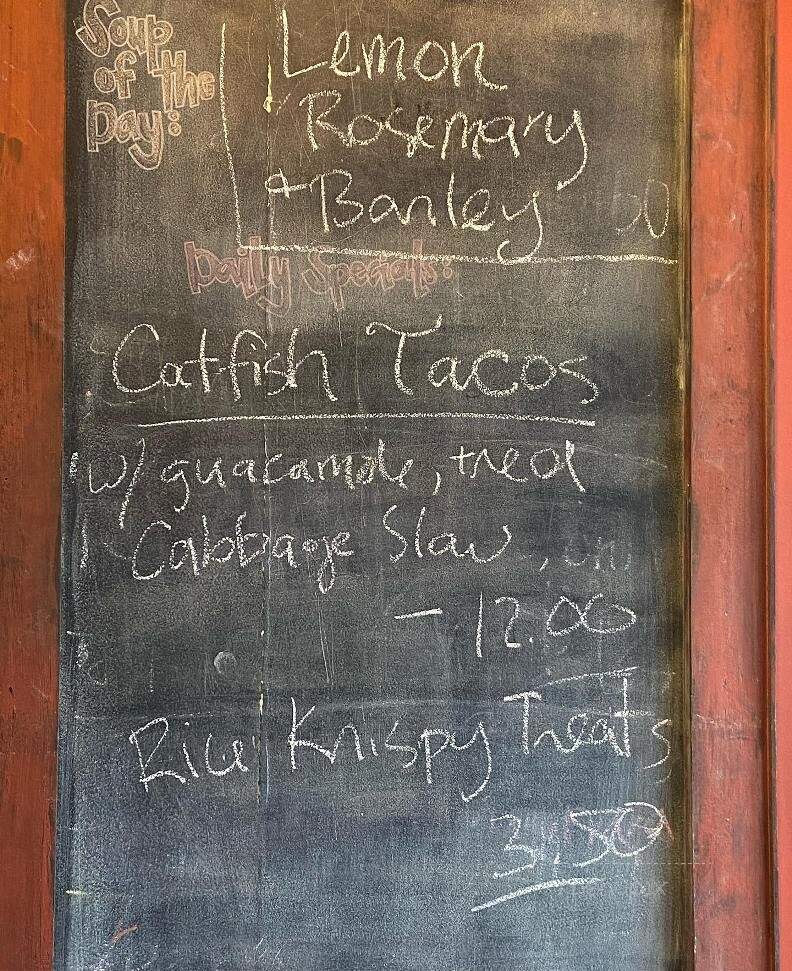 Soup
of the
Day:
Lemon
Rosemary
& Barley
Daily Specials:
Catfish Tacos
w/ guacamole, fried
Cabbage Slaw
- 12.00
Rice Krispy Treats
3.50